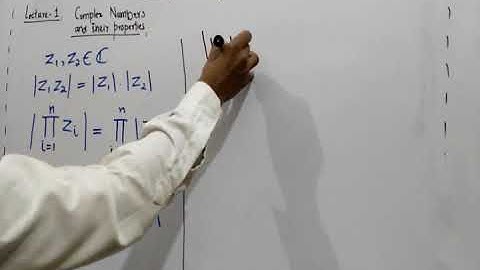 Lecture-1 Complex Numbers
and their properties.
z₁, z₂ ∈ ℂ
|z₁z₂| = |z₁|·|z₂|
|∏ᵢ₌₁ⁿ zᵢ| = ∏ᵢ₌₁ⁿ |